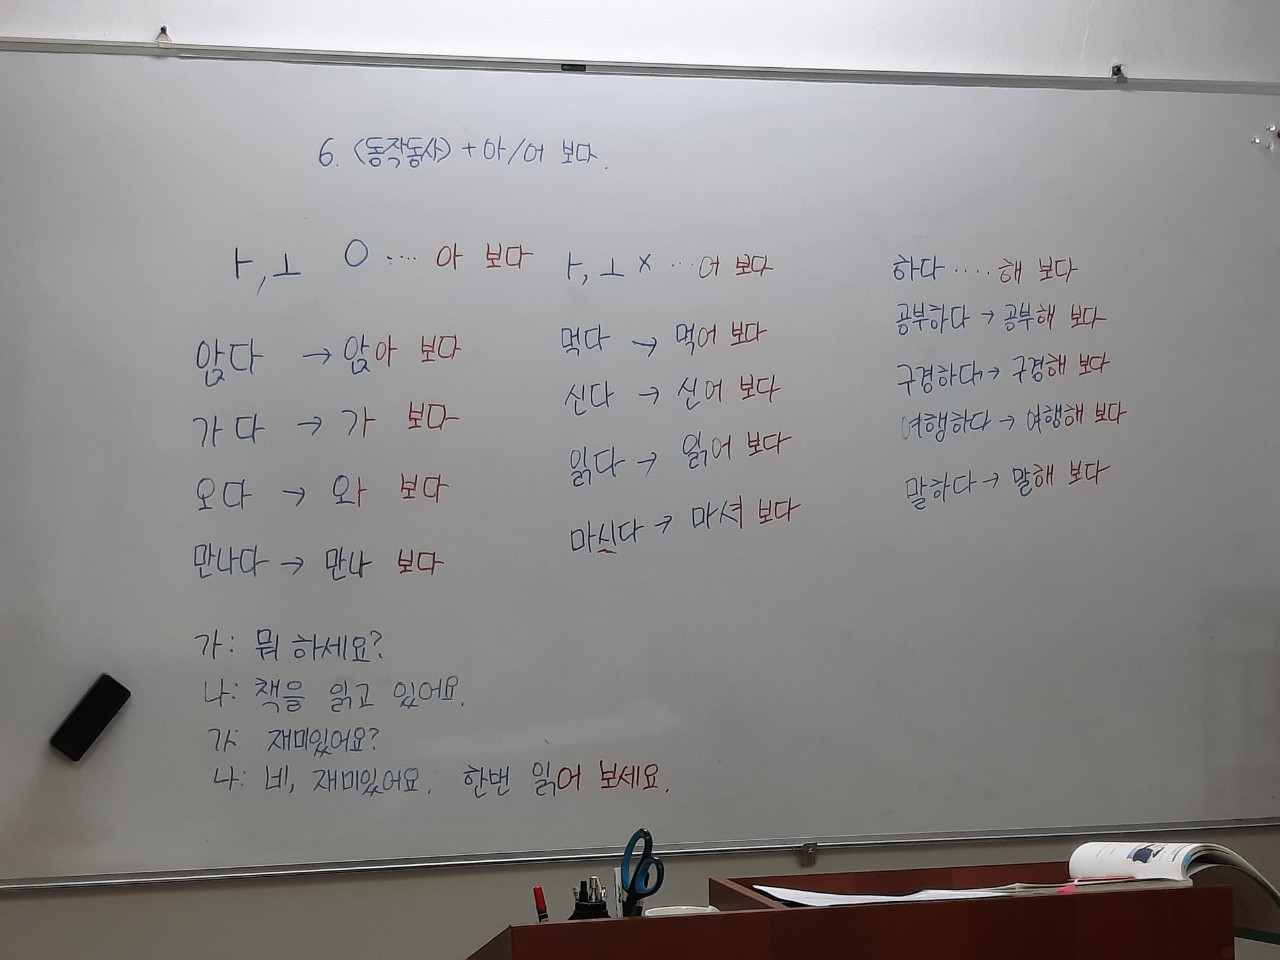 6. <동작동사> + 아/어 보다.
ㅏ, ㅗ O .... 아 보다
앉다 → 앉아 보다
가다 → 가 보다
오다 → 와 보다
만나다 → 만나 보다
ㅏ, ㅗ X ... 어 보다
먹다 → 먹어 보다
신다 → 신어 보다
읽다 → 읽어 보다
마시다 → 마셔 보다
하다 .... 해 보다
공부하다 → 공부해 보다
구경하다 → 구경해 보다
여행하다 → 여행해 보다
말하다 → 말해 보다
가: 뭐 하세요?
나: 책을 읽고 있어요.
가: 재미있어요?
나: 네, 재미있어요. 한번 읽어 보세요.